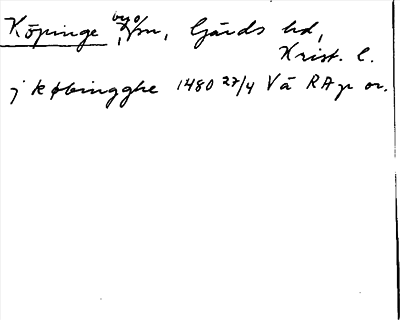 Köpinge by o. sn, Gärds hd,
Krist. l.
j købingghe 1480 27/4 Vä RAp or.